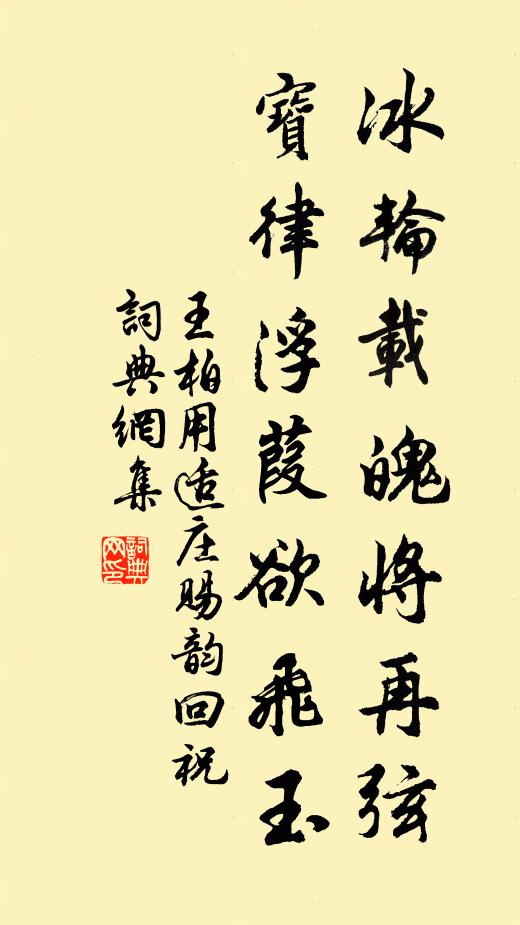 冰輪載魄將再弦
寶律浮葭欲飛玉
王柏用适庄赐韵回祝
詞典網集
詞典網印